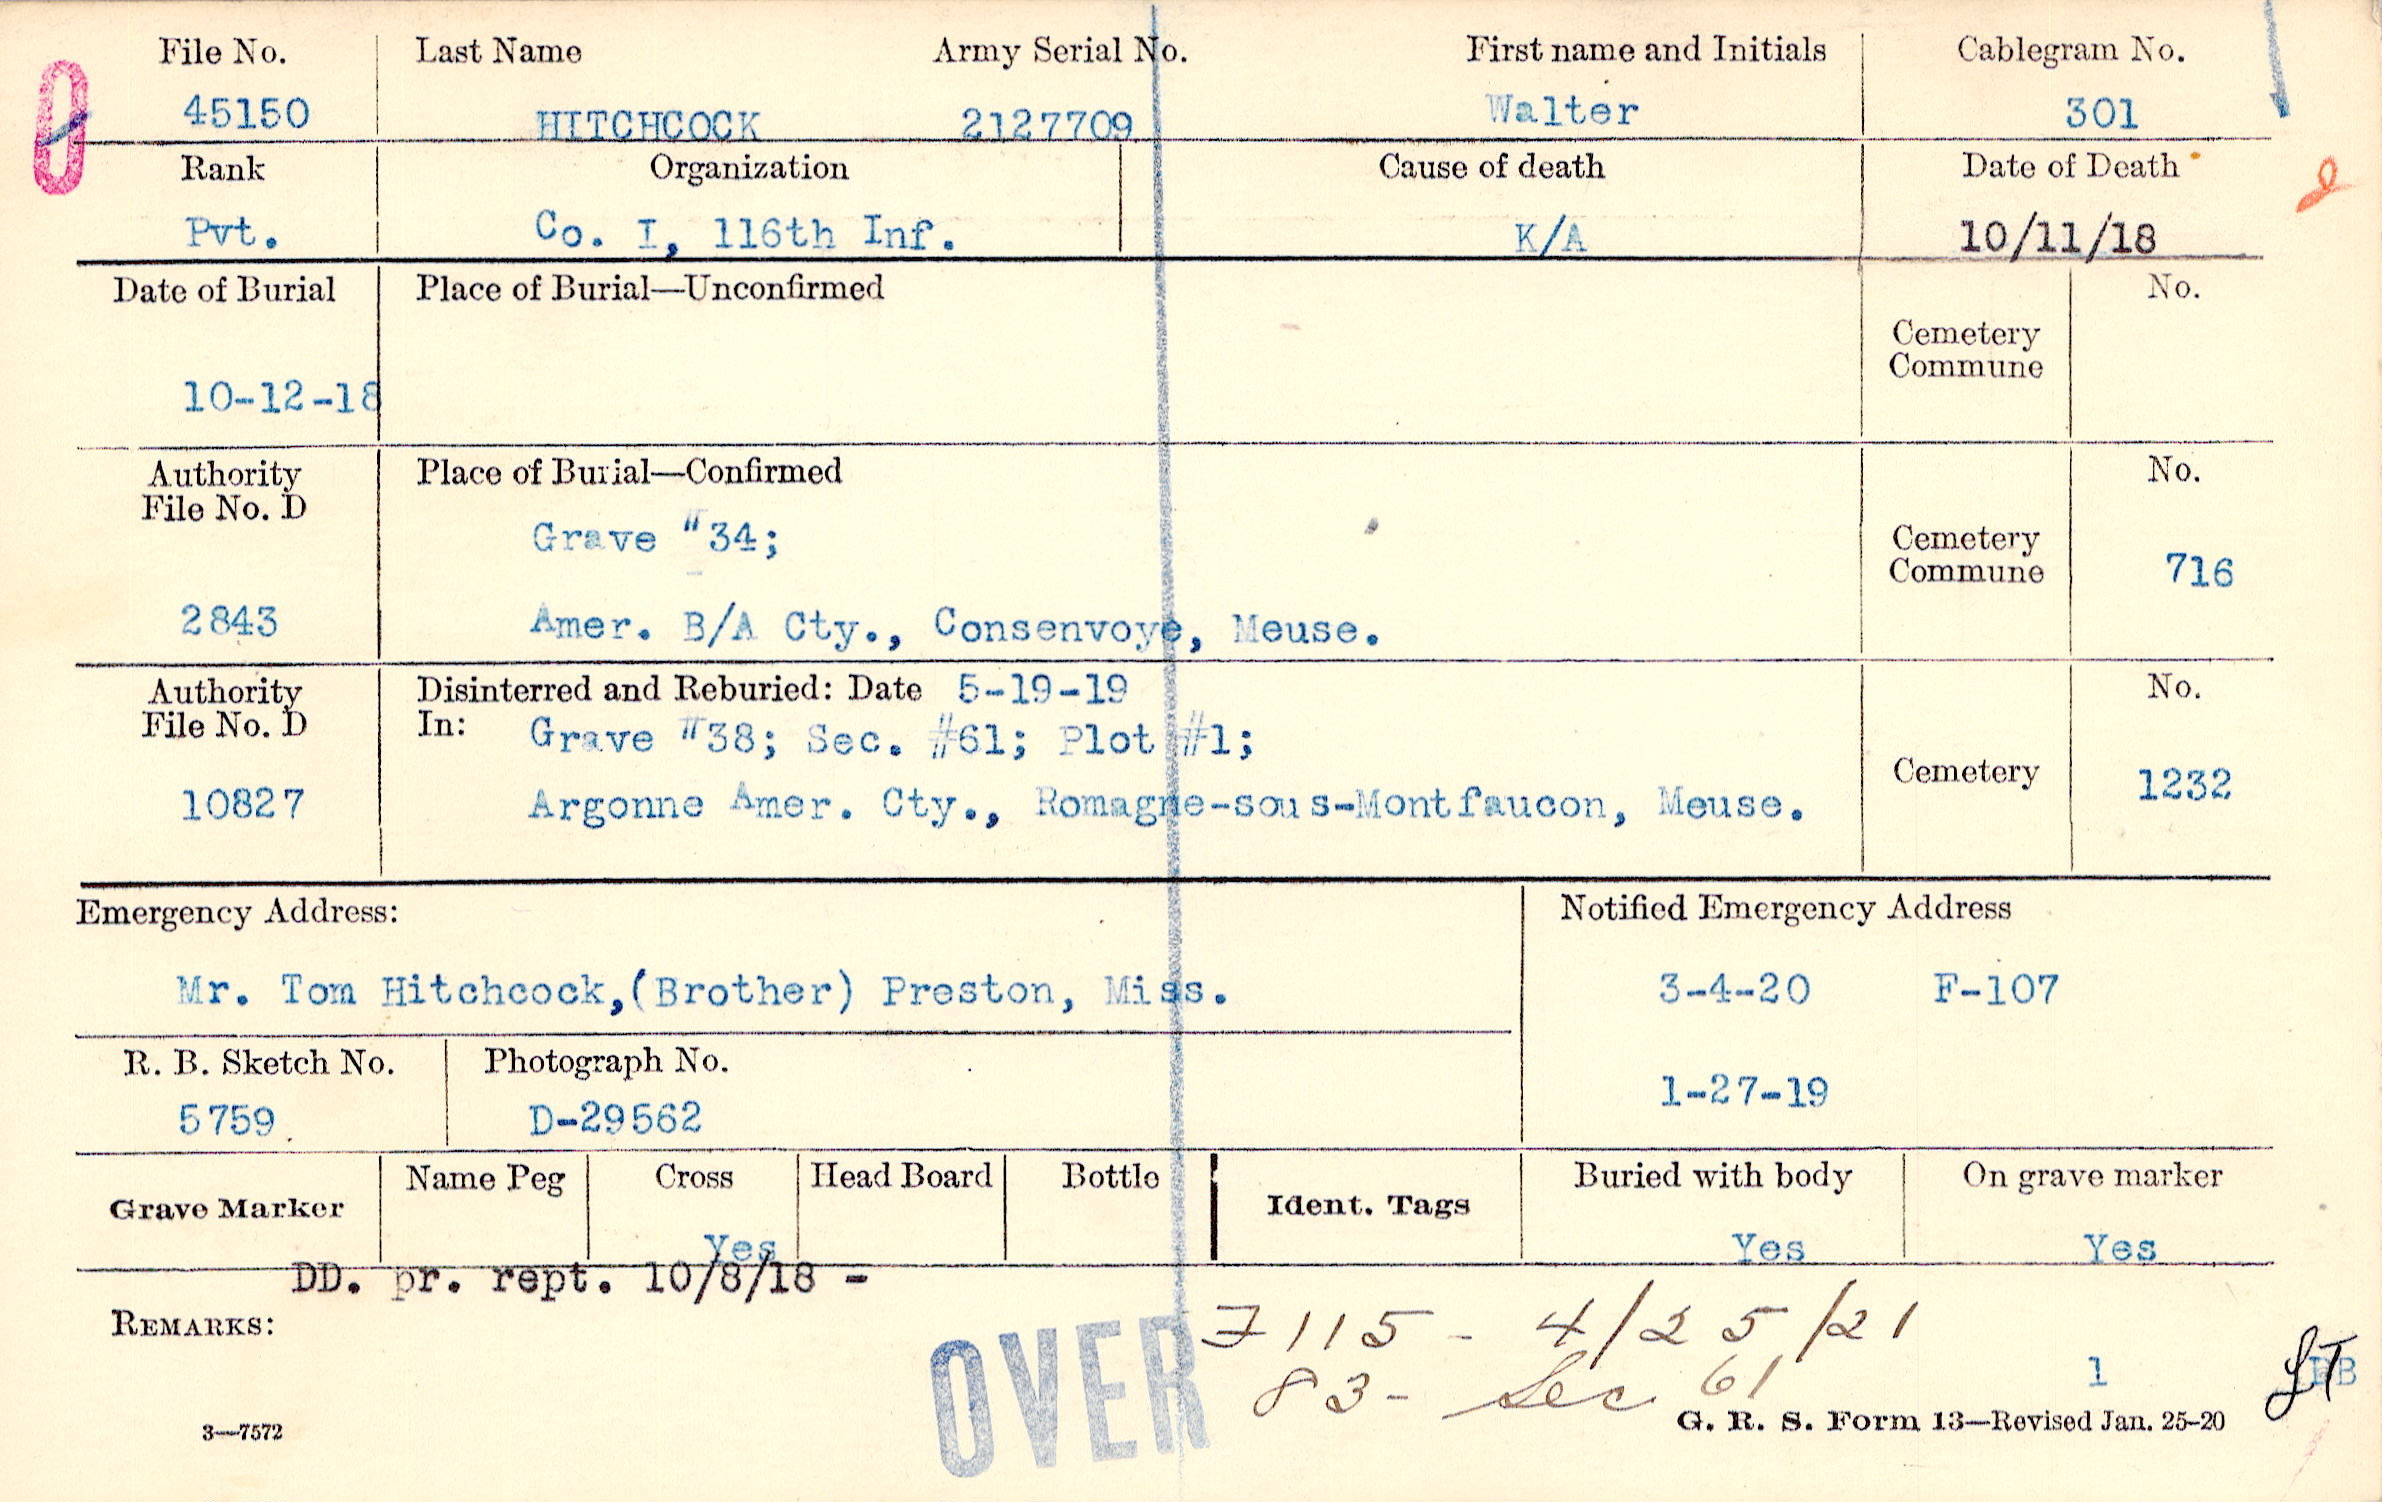 File No. Last Name Army Serial No. First name and Initials Cablegram No.
45150 HITCHCOCK 2127709 Walter 301
Rank Organization Cause of death Date of Death
Pvt. Co. I, 116th Inf. K/A 10/11/18
Date of Burial Place of Burial—Unconfirmed No.
Cemetery
Commune
10-12-18
Authority Place of Burial—Confirmed No.
File No. D
Grave #34;
Cemetery
Commune 716
2843 Amer. B/A Cty., Consenvoye, Meuse.
Authority Disinterred and Reburied: Date 5-19-19 No.
File No. D In: Grave #38; Sec. #61; Plot #1;
Cemetery 1232
10827 Argonne Amer. Cty., Romagne-sous-Montfaucon, Meuse.
Emergency Address: Notified Emergency Address
Mr. Tom Hitchcock,(Brother) Preston, Miss. 3-4-20 F-107
R. B. Sketch No. Photograph No.
5759 D-29562 1-27-19
Name Peg Cross Head Board Bottle Buried with body On grave marker
Grave Marker Ident. Tags
Yes Yes Yes
DD. pr. rept. 10/8/18 -
REMARKS:
OVER
F115 - 4/25/21
83- Sec 61
1
3—7572 G. R. S. Form 13—Revised Jan. 25-20